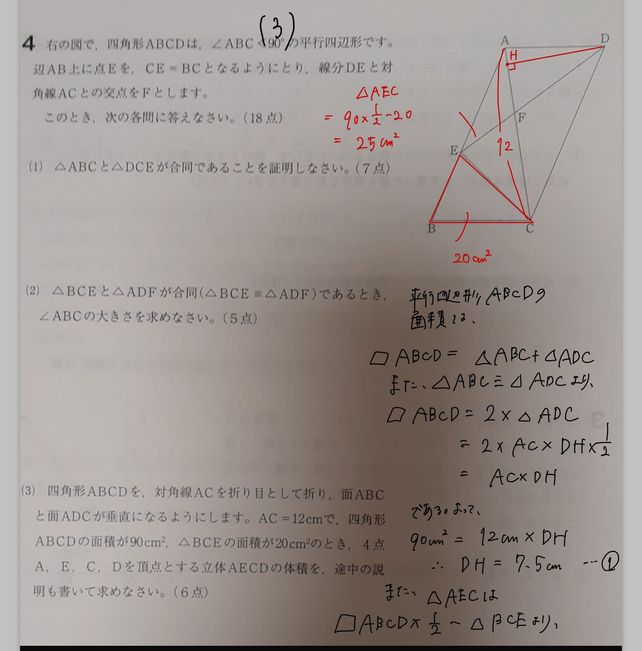 (3)
4 右の図で，四角形ABCDは，∠ABC＜90°の平行四辺形です。
辺AB上に点Eを，CE＝BCとなるようにとり，線分DEと対
角線ACとの交点をFとします。
このとき，次の各問に答えなさい。(18点)
△AEC
= 90×1/2-20
= 25cm²
(1) △ABCと△DCEが合同であることを証明しなさい。(7点)
A
D
H
F
E
12
B
C
20cm²
(2) △BCEと△ADFが合同(△BCE≡△ADF)であるとき，
∠ABCの大きさを求めなさい。(5点)
平行四辺形ABCDの
面積は、
□ABCD = △ABC+△ADC
また、△ABC≡△ADCより、
□ABCD = 2×△ADC
= 2×AC×DH×1/2
= AC×DH
(3) 四角形ABCDを，対角線ACを折り目として折り，面ABC
と面ADCが垂直になるようにします。AC＝12cmで，四角形
ABCDの面積が90cm²，△BCEの面積が20cm²のとき，4点
A，E，C，Dを頂点とする立体AECDの体積を，途中の説
明も書いて求めなさい。(6点)
である。よって、
90cm² = 12cm×DH
∴ DH = 7.5cm …①
また、△AECは
□ABCD×1/2-△BCEより、